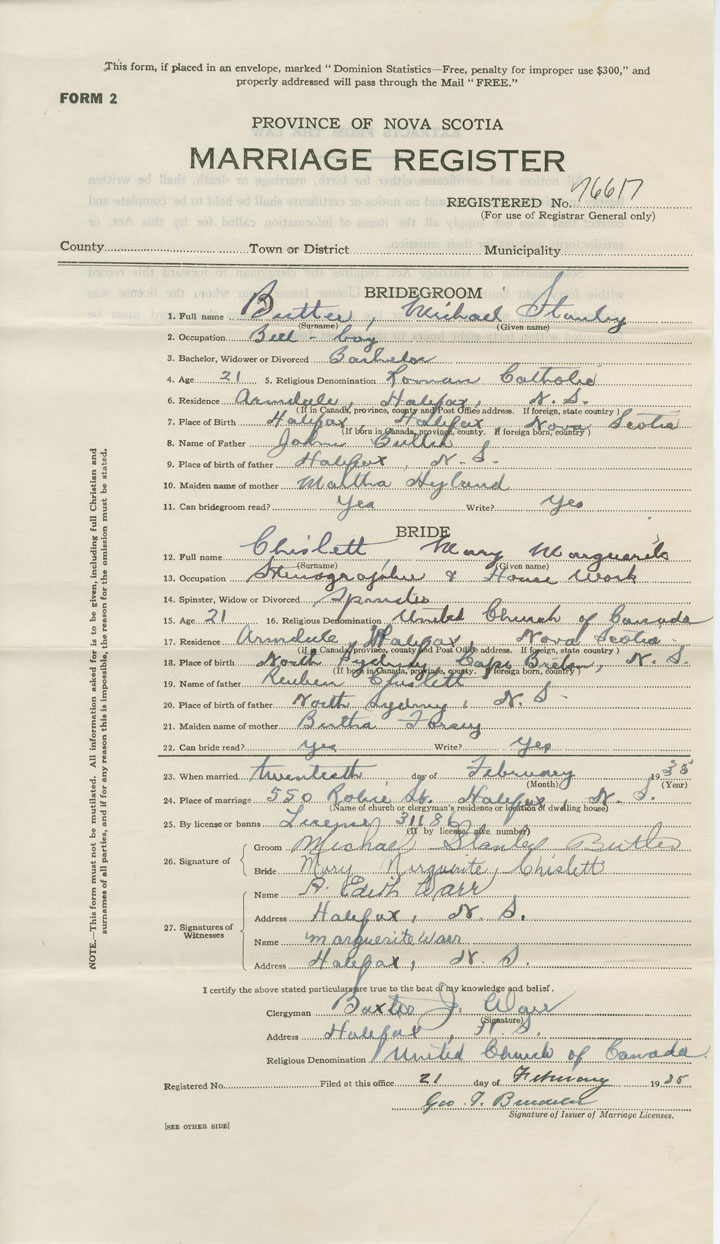 This form, if placed in an envelope, marked "Dominion Statistics—Free, penalty for improper use $300," and
properly addressed will pass through the Mail "FREE."
FORM 2
PROVINCE OF NOVA SCOTIA
MARRIAGE REGISTER
REGISTERED No. 76617
(For use of Registrar General only)
County Town or District Municipality
BRIDEGROOM
1. Full name Butler, Michael Stanley
(Surname) (Given name)
2. Occupation Bell-boy
3. Bachelor, Widower or Divorced Bachelor
4. Age 21 5. Religious Denomination Roman Catholic
6. Residence Armdale, Halifax, N. S.
(If in Canada, province, county and Post Office address. If foreign, state country)
7. Place of Birth Halifax, Halifax, Nova Scotia
(If born in Canada, province, county. If foreign born, country)
8. Name of Father John Butler
9. Place of birth of father Halifax, N. S.
10. Maiden name of mother Martha Hyland
11. Can bridegroom read? Yes Write? Yes
BRIDE
12. Full name Chislett, Mary Marguerite
(Surname) (Given name)
13. Occupation Stenographer & House Work
14. Spinster, Widow or Divorced Spinster
15. Age 21 16. Religious Denomination United Church of Canada
17. Residence Armdale, Halifax, Nova Scotia
(If in Canada, province, county and Post Office address. If foreign, state country)
18. Place of birth North Sydney, Cape Breton, N. S.
(If born in Canada, province, county. If foreign born, country)
19. Name of father Reuben Chislett
20. Place of birth of father North Sydney, N. S.
21. Maiden name of mother Bertha Forsey
22. Can bride read? Yes Write? Yes
23. When married twentieth day of February 1935
(Month) (Year)
24. Place of marriage 550 Robie St. Halifax, N. S.
(Name of church or clergyman's residence or location of dwelling house)
25. By license or banns License 31186
(If by license, give number)
26. Signature of Groom Michael Stanley Butler
Bride Mary Marguerite Chislett
27. Signatures of Witnesses Name A. Edith Warr
Address Halifax, N. S.
Name Marguerite Warr
Address Halifax, N. S.
I certify the above stated particulars are true to the best of my knowledge and belief.
Clergyman Baxter J. Warr
(Signature)
Address Halifax, N. S.
Religious Denomination United Church of Canada
Registered No. Filed at this office 21 day of February 1935
Geo. T.
Signature of Issuer of Marriage Licenses.
[SEE OTHER SIDE]
NOTE.—This form must not be mutilated. All information asked for is to be given, including full Christian and
surnames of all parties, and if for any reason this is impossible, the reason for the omission must be stated.